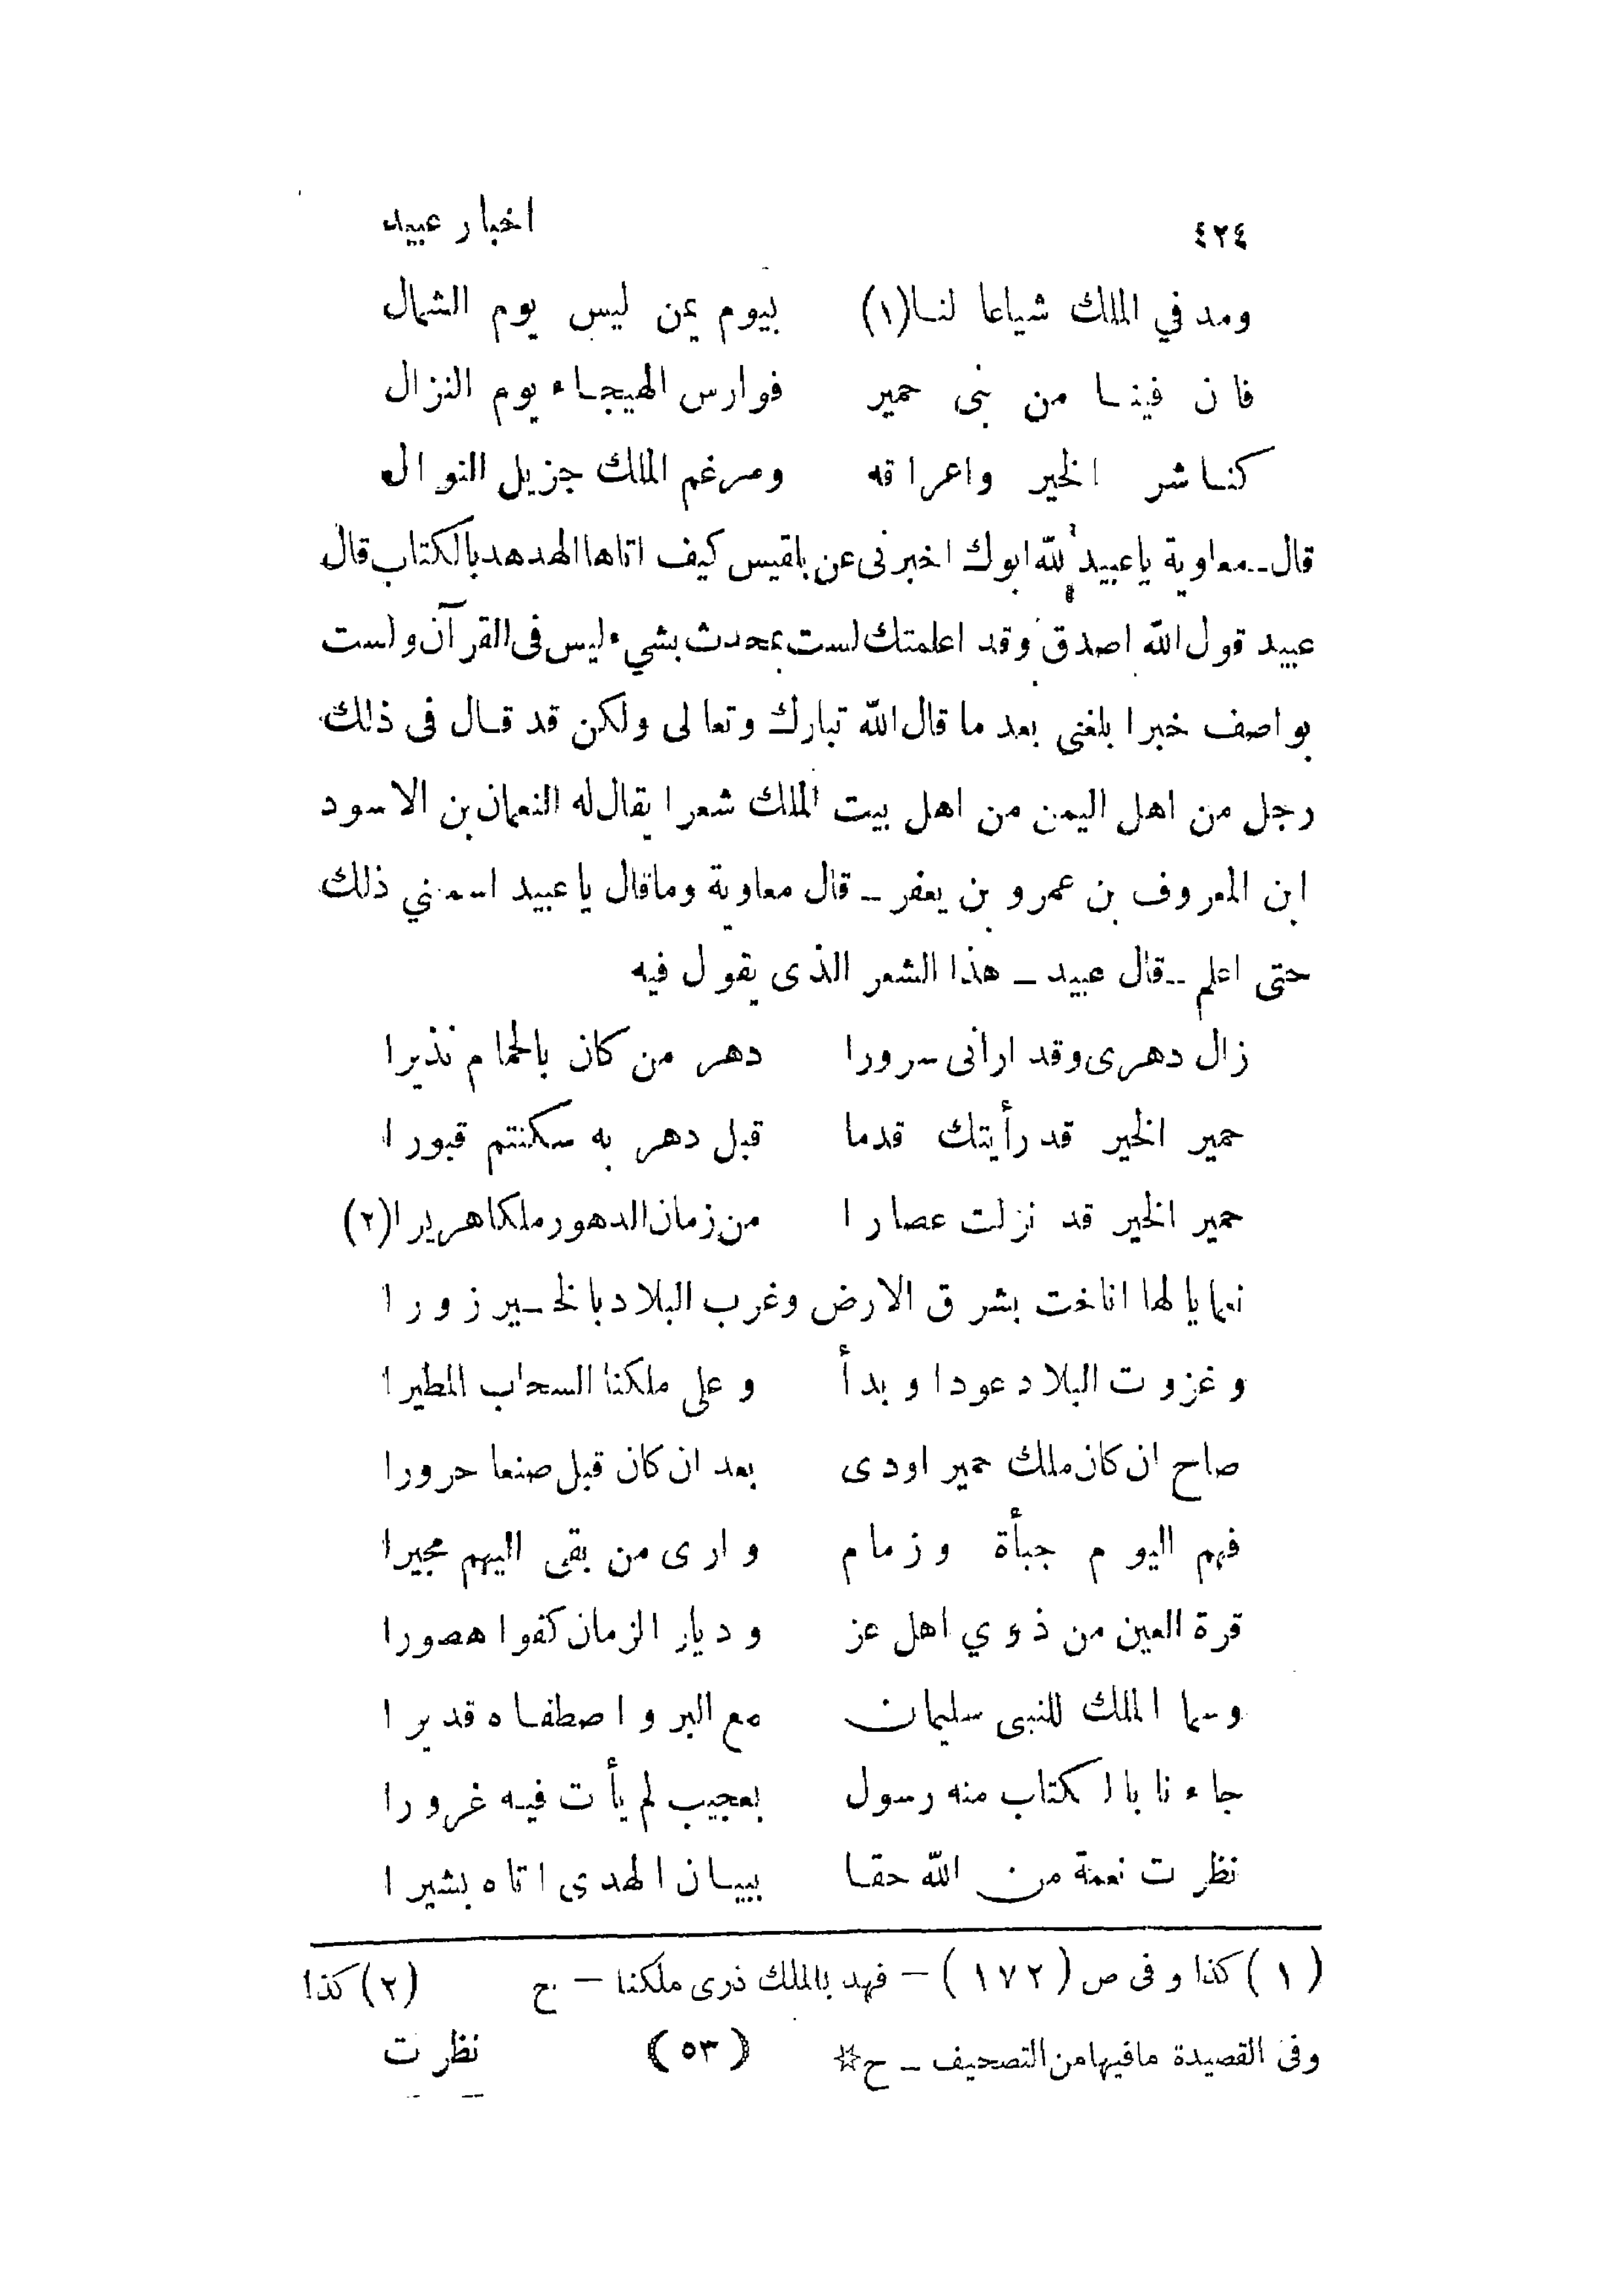 ٤٢٤ اخبار عبيد
ومد في الملك شياعا لنا(١) بيوم يمن ليس يوم الشمال
فان فينا من بنى حمير فوارس الهيجاء يوم النزال
كناشر الخير واعراقه ومرغم الملك جزيل النوال
قال ـ معاوية ياعبيد لله ابوك اخبرنى عن بلقيس كيف اتاها الهدهد بالكتاب قال
عبيد قول الله اصدق وقد اعلمتك لست بمحدث بشيء ليس فى القرآن ولست
بواصف خبرا بلغنى بعد ما قال الله تبارك وتعالى ولكن قد قال فى ذلك
رجل من اهل اليمن من اهل بيت الملك شعرا يقال له النعمان بن الاسود
ابن المعروف بن عمرو بن يعفر ـ قال معاوية وماقال ياعبيد اسمعني ذلك
حتى اعلم ـ قال عبيد ـ هذا الشعر الذى يقول فيه
زال دهرى وقد ارانى سرورا دهر من كان بالحمام نذيرا
حمير الخير قد رأيتك قدما قبل دهر به سكنتم قبورا
حمير الخير قد نزلت عصارا من زمان الدهور ملكا هريرا(٢)
نعمايا لها اناخت بشرق الارض وغرب البلاد بالخير زورا
وغزوت البلاد عودا وبدأ وعلى ملكنا السحاب المطيرا
صاح ان كان ملك حمير اودى بعد ان كان قبل صنعا حرورا
فهم اليوم جبأة وزمام وارى من بقى اليهم مجيرا
قرة العين من ذوي اهل عز وديار الزمان كفوا هصورا
وسما الملك للنبى سليمان مع البر واصطفاه قديرا
جاءنا بالكتاب منه رسول بعجيب لم يأت فيه غرورا
نظرت نعمة من الله حقا ببيان الهدى اتاه بشيرا
(١) كذا وفى ص (١٧٢) ـ فهد بالملك ذرى ملكنا ـ ح (٢) كذا
وفى القصيدة مافيها من التصحيف ـ ح☆ (٥٣) نظرت